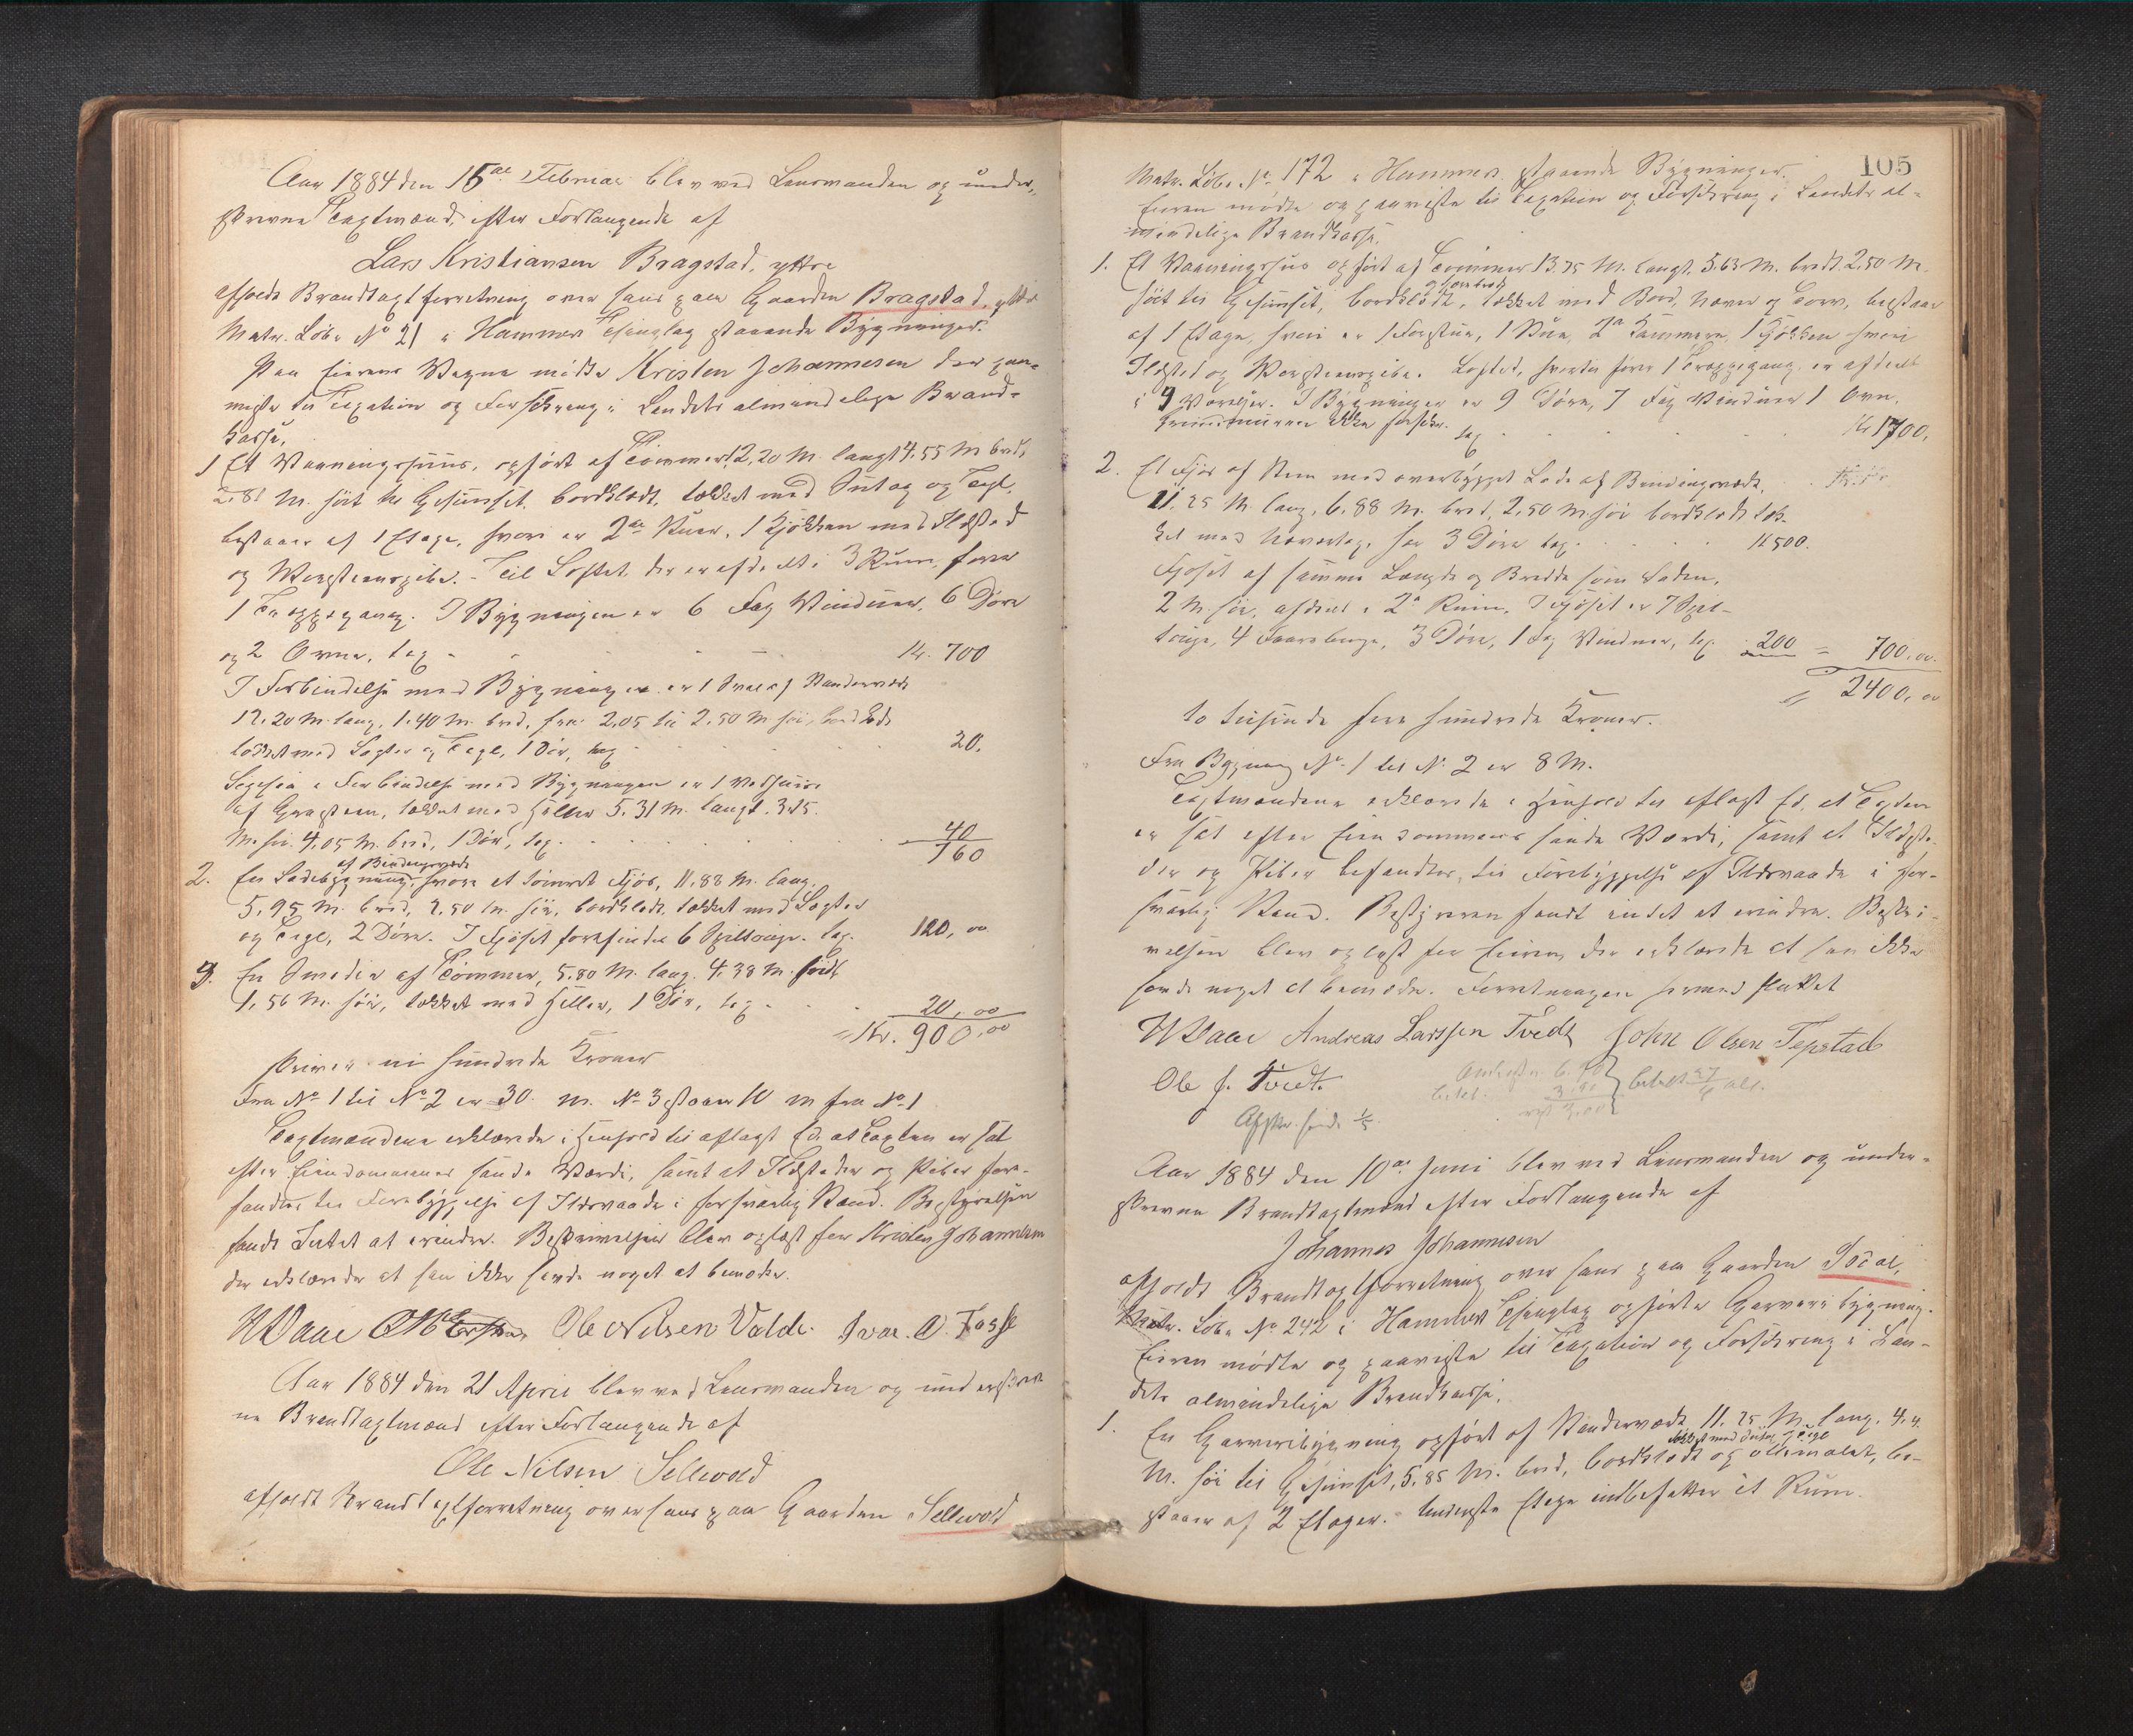 Aar 1884 den 15de Februar blev ved Lensmanden og under-
skrevne Taxtmænd, efter Forlangende af
Lars Kristiansen Bragstad, yttre
afholdt Brandtaxtforretning over hans paa Gaarden Bragstad yttre
Matr. Løbe No 21 i Hammer Thinglag staaende Bygninger.
Paa Eierens Vegne mødte Kristen Johannesen der paa-
viste til Taxation og Forsikring i Landets almindelige Brand-
kasse.
1 Et Vaaningshuus, opført af Tømmer 12,20 M. langt 4.55 M bredt
2.81 M. høit til Gesimset, bordklædt, tækket med Sutag og Tegl,
bestaaer af 1 Etage, hvori er 2de Stuer, 1 Kjøkken med Ildsted
og Skorsteenspibe. Til Loftet, der er afdeelt i 3 Rum, fører
1 Trappegang. I Bygningen er 6 Fag Vinduer, 6 Døre
og 2 Ovne, tax. Kr. 700
I Forbindelse med Bygningen er 1 Sval af Standerværk
12.20 M. lang, 1.40 M. bred, fra 2.05 til 2.50 M høi, bordklædt
tækket med Lægter og Tegl, 1 Dør, tax 20.
Ligesaa i Forbindelse med Bygningen er 1 Vedhuus
af Graasteen, tækket med Heller 5.31 M. langt. 3.15.
M. høi. 4.05 M. bred, 1 Dør, tax. 40
760
2. En Ladebygning af Bindingsværk, hvori et tømret Fjøs, 11.88 M. lang.
5.95 M. bred, 2.50 M. høi, bordklædt, tækket med Lægter
og Tegl, 2 Døre. I Fjøset forefindes 6 Spiltouge. tax. 120,00
3. En Smedie af Tømmer, 5.80 M. lang. 4.38 M. bredt
1,56 M. høi, tækket med Heller, 1 Dør, tax 20,00
= Kr. 900,00
skriver ni hundrede Kroner
Fra No 1 til No 2 er 30. m. No 3 staaer 10 m fra No 1
Taxtmændene erklærede i Henhold til aflagt Ed at Taxten er sat
efter Eiendommenes sande Værdi, samt at Ildsteder og Piber be-
fandtes til Forebyggelse af Ildsvaade i forsvarlig Stand. Bestyrelsen
fandt Intet at erindre. Beskrivelsen blev oplæst for Kristen Johannesen
der erklærede at han ikke havde noget at bemærke.
Ole Nilsen Valde. Ivar. O. Fosse
Aar 1884 den 21 April blev ved Lensmanden og underskrev-
ne Brandtaxtmænd efter Forlangende af
Ole Nilsen Sellevold
afholdt Brandtaxtforretning over hans paa Gaarden Sellevold
105
Matr. Løbe No 172 i Hammer staaende Bygninger.
Eieren mødte og paaviste til Taxation og Forsikring i Landets al-
mindelige Brandkasse.
1. Et Vaaningshuus opført af Tømmer 13.75 M. langt. 5.63 M. bredt. 2.50 M.
høit til Gesimset, bordklædt, tækket med Bord, Næver og Torv, bestaaer
af 1 Etage, hvori er 1 Forstue, 1 Stue, 2de Kammere, 1 Kjøkken hvori
Ildsted og Skorsteenspibe. Loftet, hvortil fører 1 Trappegang, er afdeelt
i 4 Værelser. I Bygningen er 9 Døre, 7 Fag Vinduer 1 Ovn.
Grundmuren ikke forsikr. tax Kr 1700.
2. Et Fjøs af Sten med overbygget Lade af Bindingsværk,
11.25 M. lang, 6.88 M. bred, 2,50 M. høi bordklædt tæk-
ket med Næverlag, har 3 Døre tax. Kr 500.
Fjøset af samme Længde og Bredde som Laden,
2 M. høi, afdeelt i 2de Rum. I Fjøset er 7 Spil-
touge, 4 Faarebinge, 3 Døre, 1 Fag Vinduer, tax. 200 = 700,00.
= 2400,00
to tusinde fire hundrede Kroner.
Fra Bygning No 1 til No 2 er 8 M.
Taxtmændene erklærede i Henhold til aflagt Ed, at Taxten
er sat efter Eiendommens sande Værdi, samt at Ildste-
der og Piber befandtes, til Forebyggelse af Ildsvaade i for-
svarlig Stand. Bestyreren fandt intet at erindre. Beskri-
velsen blev oplæst for Eieren, der erklærede at han ikke
havde noget at bemærke. Forretningen hermed sluttet
Andreas Larssen Tvedt John Olsen Tepstad
Ole J. Tvedt.
Aar 1884 den 10de Juni blev ved Lensmanden og under-
skrevne Brandtaxtmænd efter Forlangende af
Johannes Johannesen
afholdt Brandtaxtforretning over hans paa Gaarden
Matr. Løbe No 242 i Hammer Thinglag opførte Garveribygning.
Eieren mødte og paaviste til Taxation og Forsikring i Lan-
dets almindelige Brandkasse.
1. En Garveribygning opført af Standerværk 11.25 M. lang. 4.4
M. høi til Gesimset, 5.85 M. bred, bordklædt og oliemalet, be-
staaer af 2 Etager. Underste Etage indbefatter et Rum.